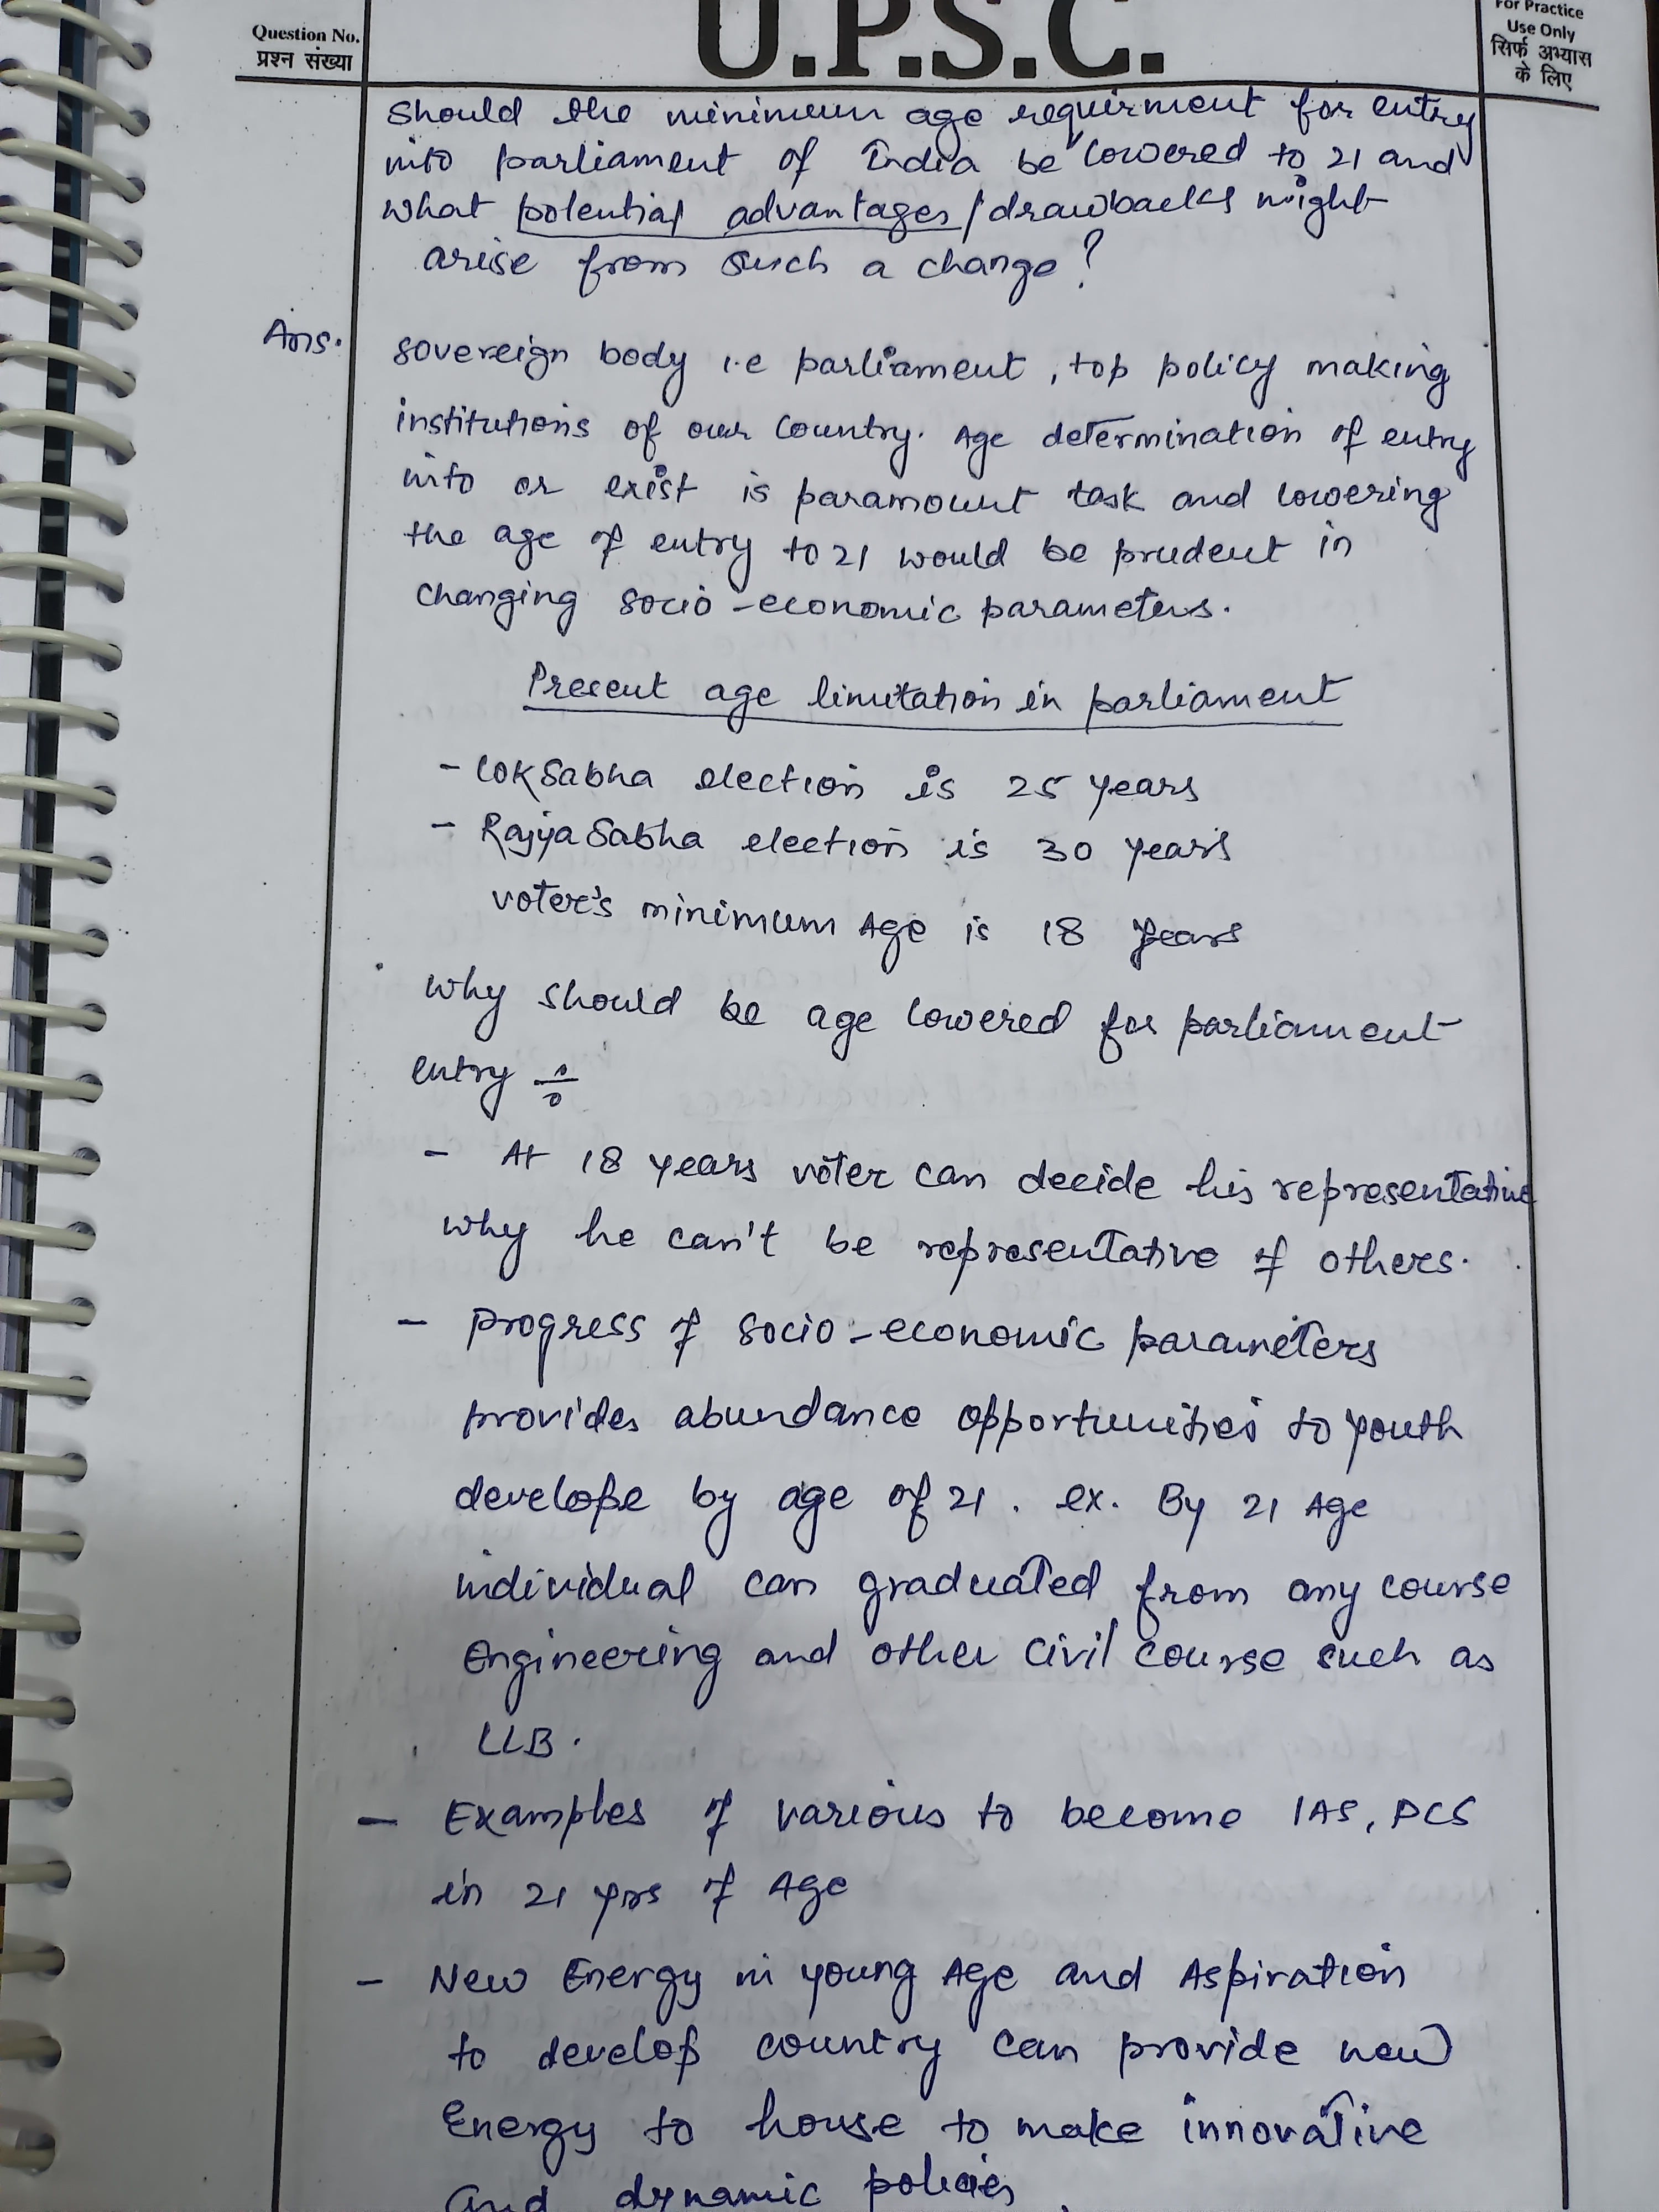 Question No.
प्रश्न संख्या
U.P.S.C.
For Practice
Use Only
सिर्फ अभ्यास
के लिए
Should the minimum age requirment for entry
into parliament of India be lowered to 21 and
what potential advantages/drawbacks might
arise from such a change?
Ans.
sovereign body i.e parliament, top policy making
institutions of our country. Age determination of entry
into or exist is paramount task and lowering
the age of entry to 21 would be prudent in
changing socio-economic parameters.
Present age limitation in parliament
- Lok Sabha election is 25 years
- Rajya Sabha election is 30 years
voter's minimum Age is 18 years
why should be age lowered for parliament
entry ÷
- At 18 years voter can decide his representative
why he can't be representative of others.
- progress of socio-economic parameters
provides abundance opportunities to youth
develope by age of 21. ex. By 21 Age
individual can graduated from any course
Engineering and other civil course such as
LLB.
- Examples of various to become IAS, PCS
in 21 yrs of Age
- New Energy in young Age and Aspiration
to develop country can provide new
Energy to house to make innovative
and dynamic policies